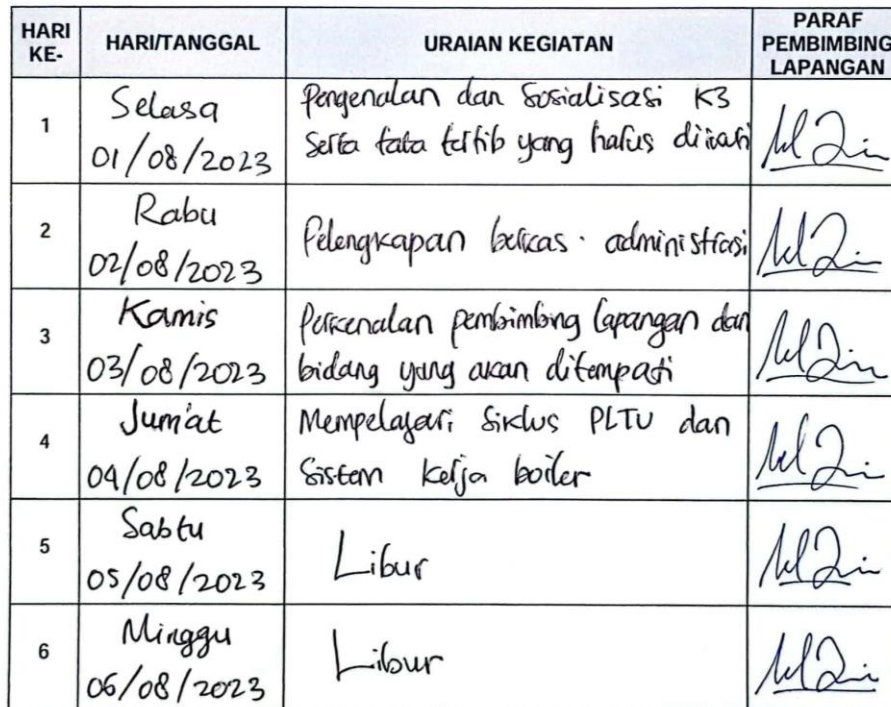 HARI KE-
HARI/TANGGAL
URAIAN KEGIATAN
PARAF PEMBIMBING LAPANGAN
1
Selasa
01/08/2023
Pengenalan dan Sosialisasi K3
Serta tata tertib yang harus
2
Rabu
02/08/2023
Pelengkapan berkas administrasi
3
Kamis
03/08/2023
Perkenalan pembimbing lapangan dan
bidang yang akan ditempati
4
Jum'at
04/08/2023
Mempelajari Siklus PLTU dan
Sistem kerja boiler
5
Sabtu
05/08/2023
Libur
6
Minggu
06/08/2023
Libur